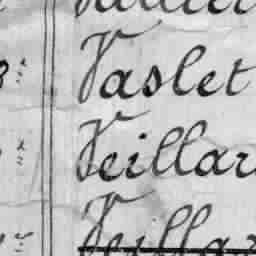 Vaslet
Veillar
Veillar